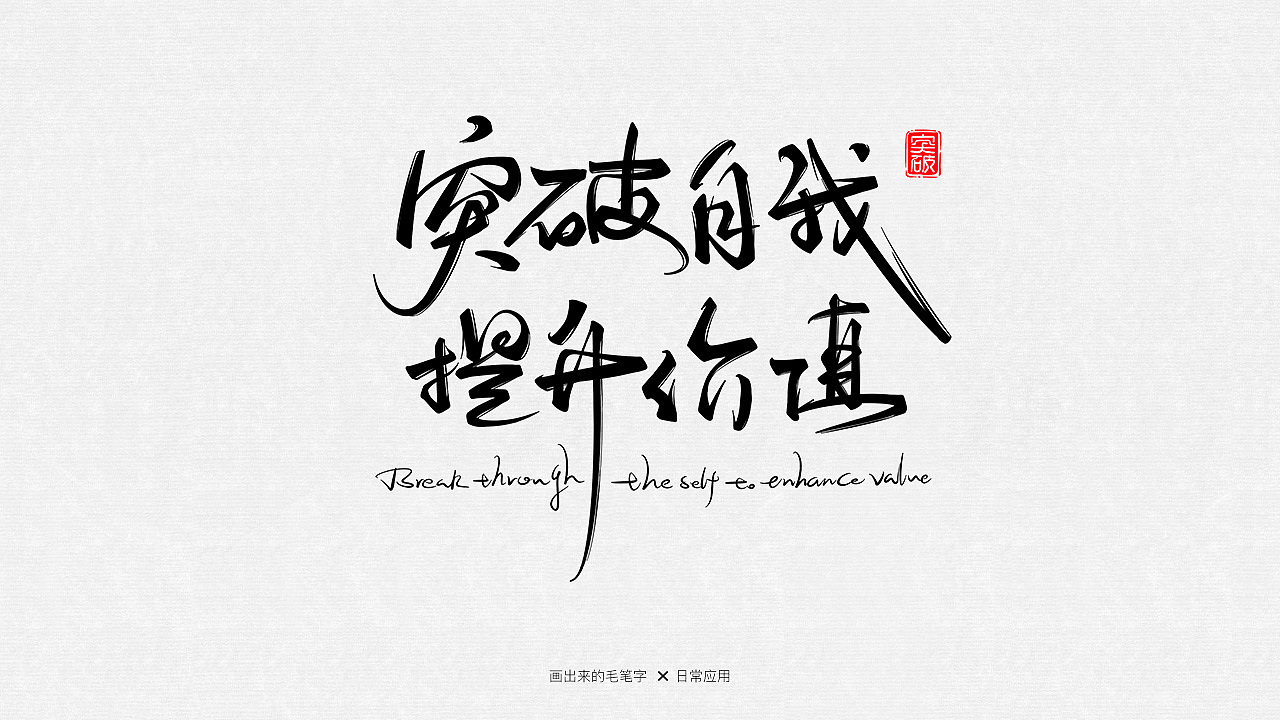 突破自我
突破
提升价值
Break through the self to enhance value
画出来的毛笔字 × 日常应用